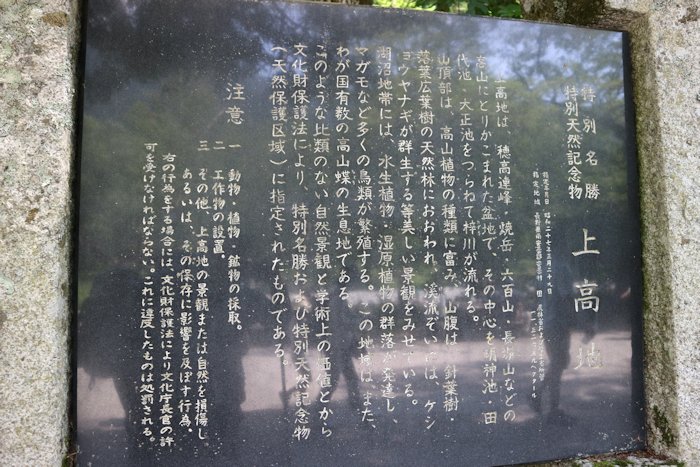 特別名勝
特別天然記念物
上高地
指定年月日 昭和二十七年三月二十九日
指定地域 長野県南安曇郡安曇村
上高地は、穂高連峰・焼岳・六百山・長塀山などの
高山にとりかこまれた盆地で、その中心を明神池・田
代池・大正池をつらねて梓川が流れる。
山頂部は、高山植物の種類に富み、山腹は、針葉樹・
落葉広葉樹の天然林におおわれ、渓流ぞいには、ケシ
ョウヤナギが群生する等美しい景観をみせている。
湖沼地帯には、水生植物・湿原植物の群落が発達し、
マガモなど多くの鳥類が繁殖する。この地域は、また、
わが国有数の高山蝶の生息地である。
このような比類のない自然景観と学術上の価値とから
文化財保護法により、特別名勝および特別天然記念物
（天然保護区域）に指定されたものである。
注意
一 動物・植物・鉱物の採取。
二 工作物の設置。
三 その他、上高地の景観または自然を損傷し
あるいは、その保存に影響を及ぼす行為。
右の行為をする場合には、文化財保護法により文化庁長官の許
可を受けなければならない。これに違反したものは処罰される。